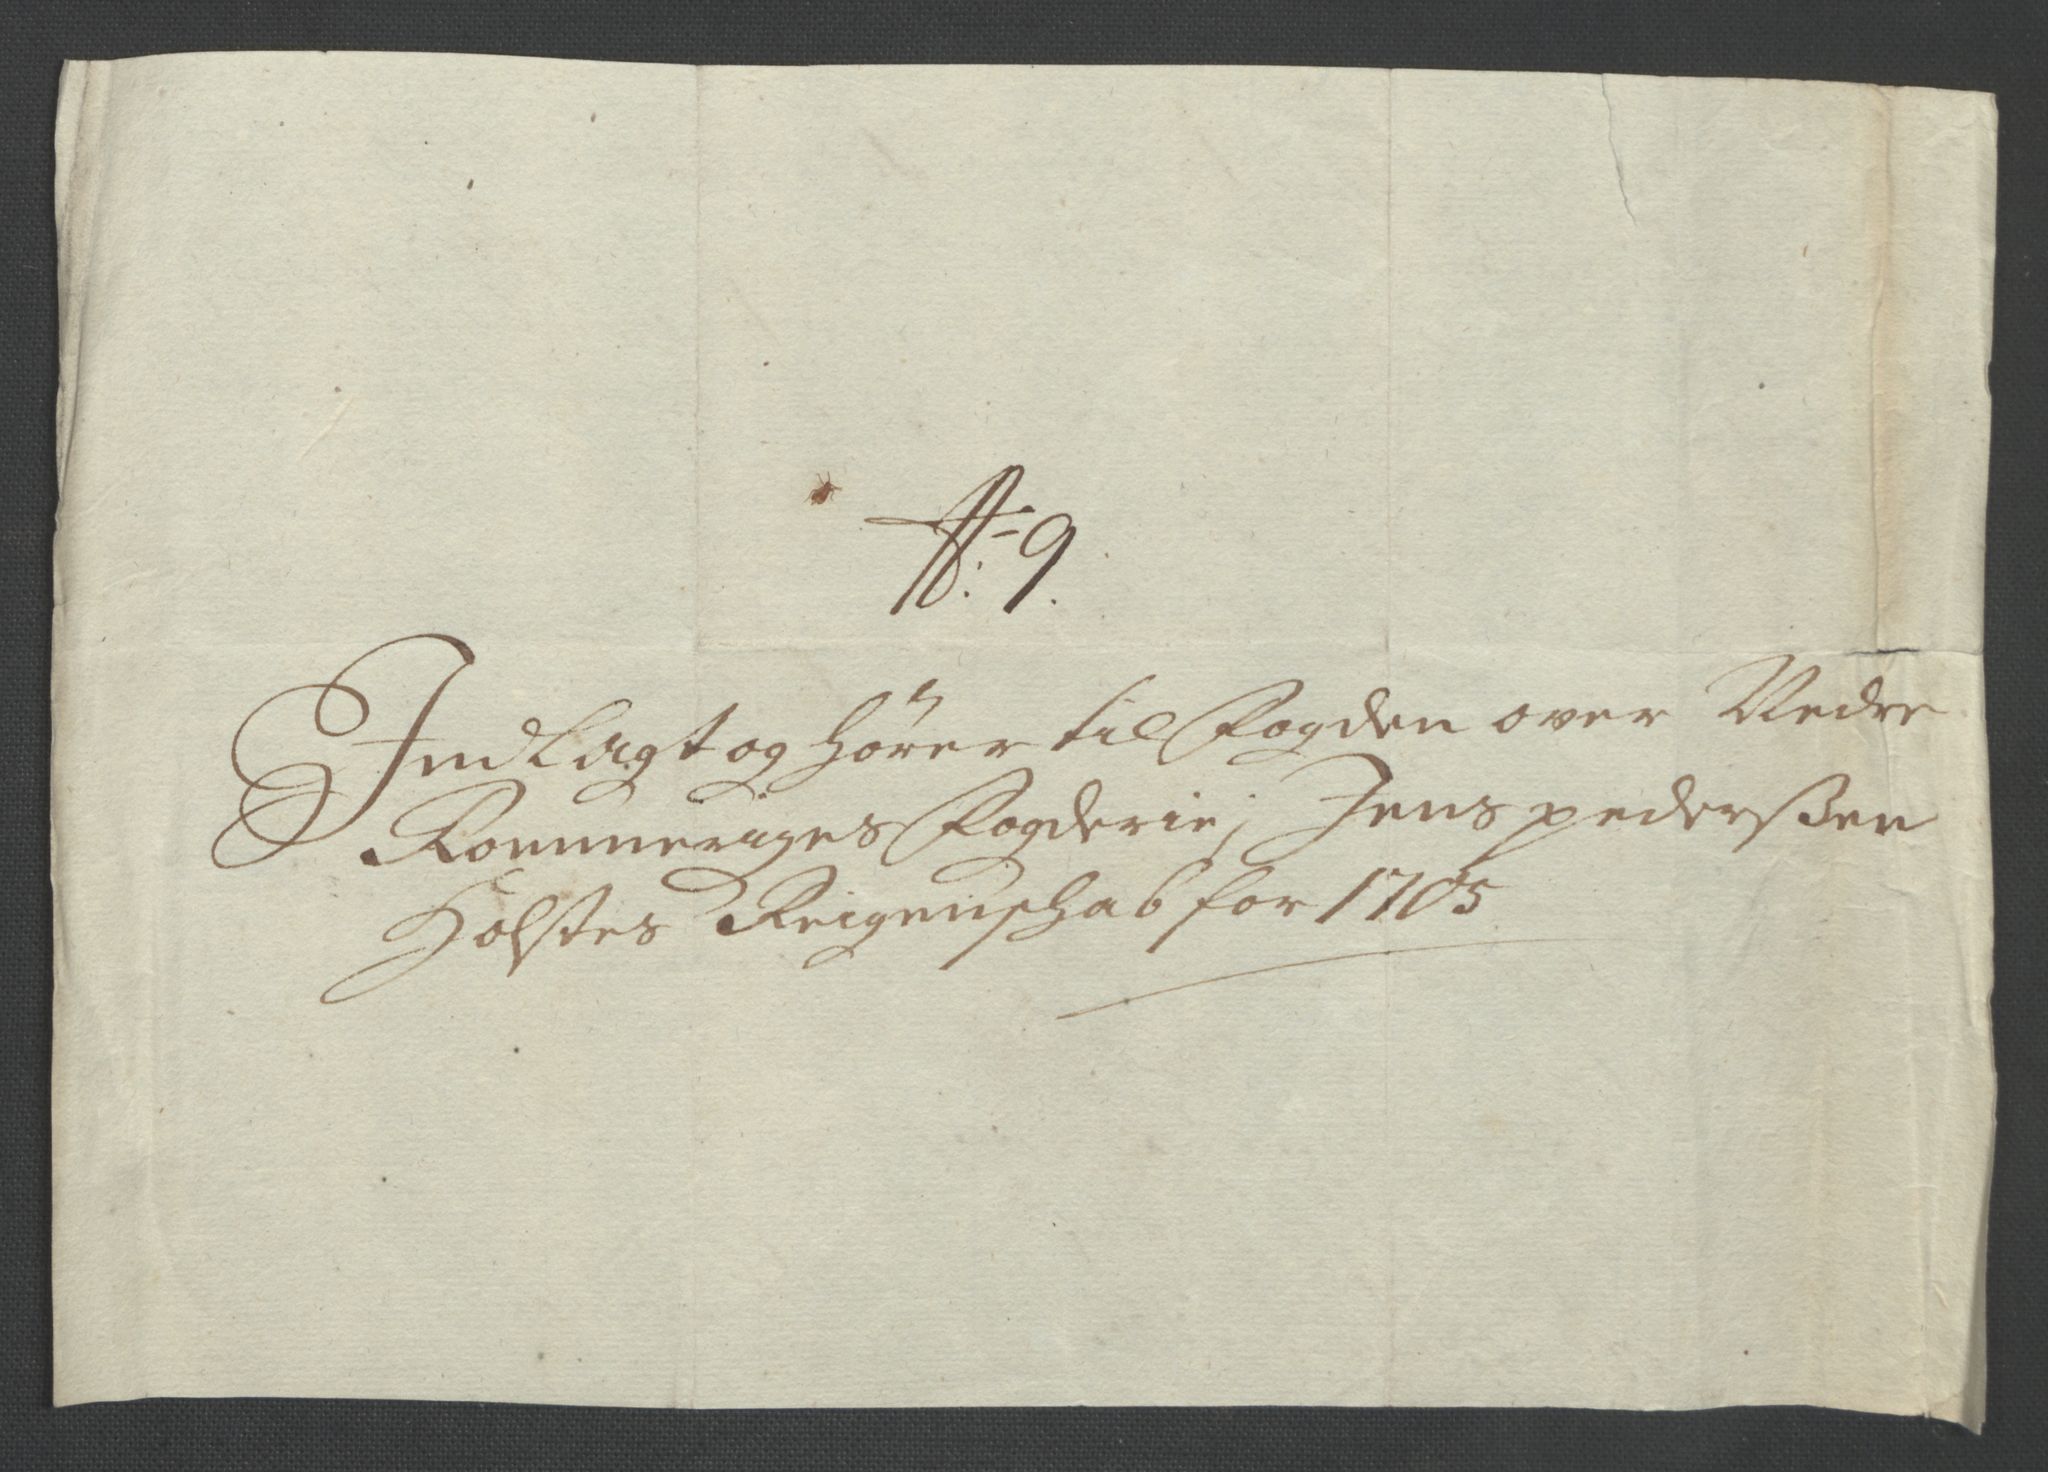 N: 9.
Indlagt og hörer til Fogden over Nedre
Rommeriges Fogderie, Jens pederßen
Holstes Reigenschab for 1705